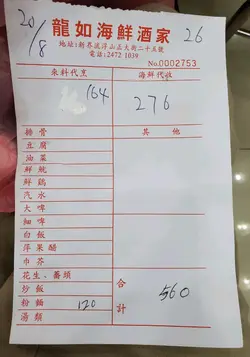 20/8
龍如海鮮酒家
26
地址:新界流浮山正大街二十五號
電話:2472 1039
No.0002753
來料代烹
海鮮代收
164
276
排骨
其他
豆腐
油菜
鮮魷
鮮鷄
汽水
大啤
細啤
白飯
蘋果醋
巾芥
花生、蕎頭
炒飯
粉麵 120
湯類
合計
560